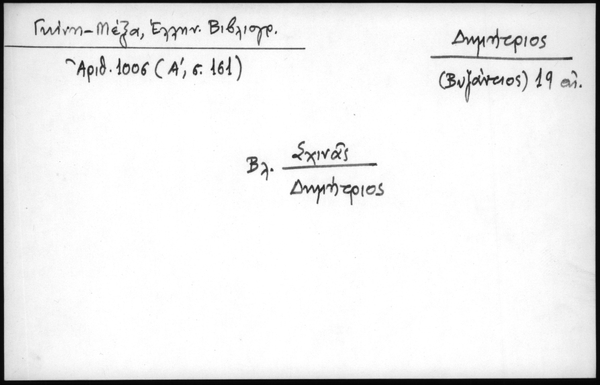 Γκίνη-Μέξα, Ἑλλην. Βιβλιογρ.
Ἀριθ. 1006 (Α΄, σ. 161)
Δημήτριος
(Βυζάντιος) 19 αἰ.
Βλ. Σχινᾶς
Δημήτριος